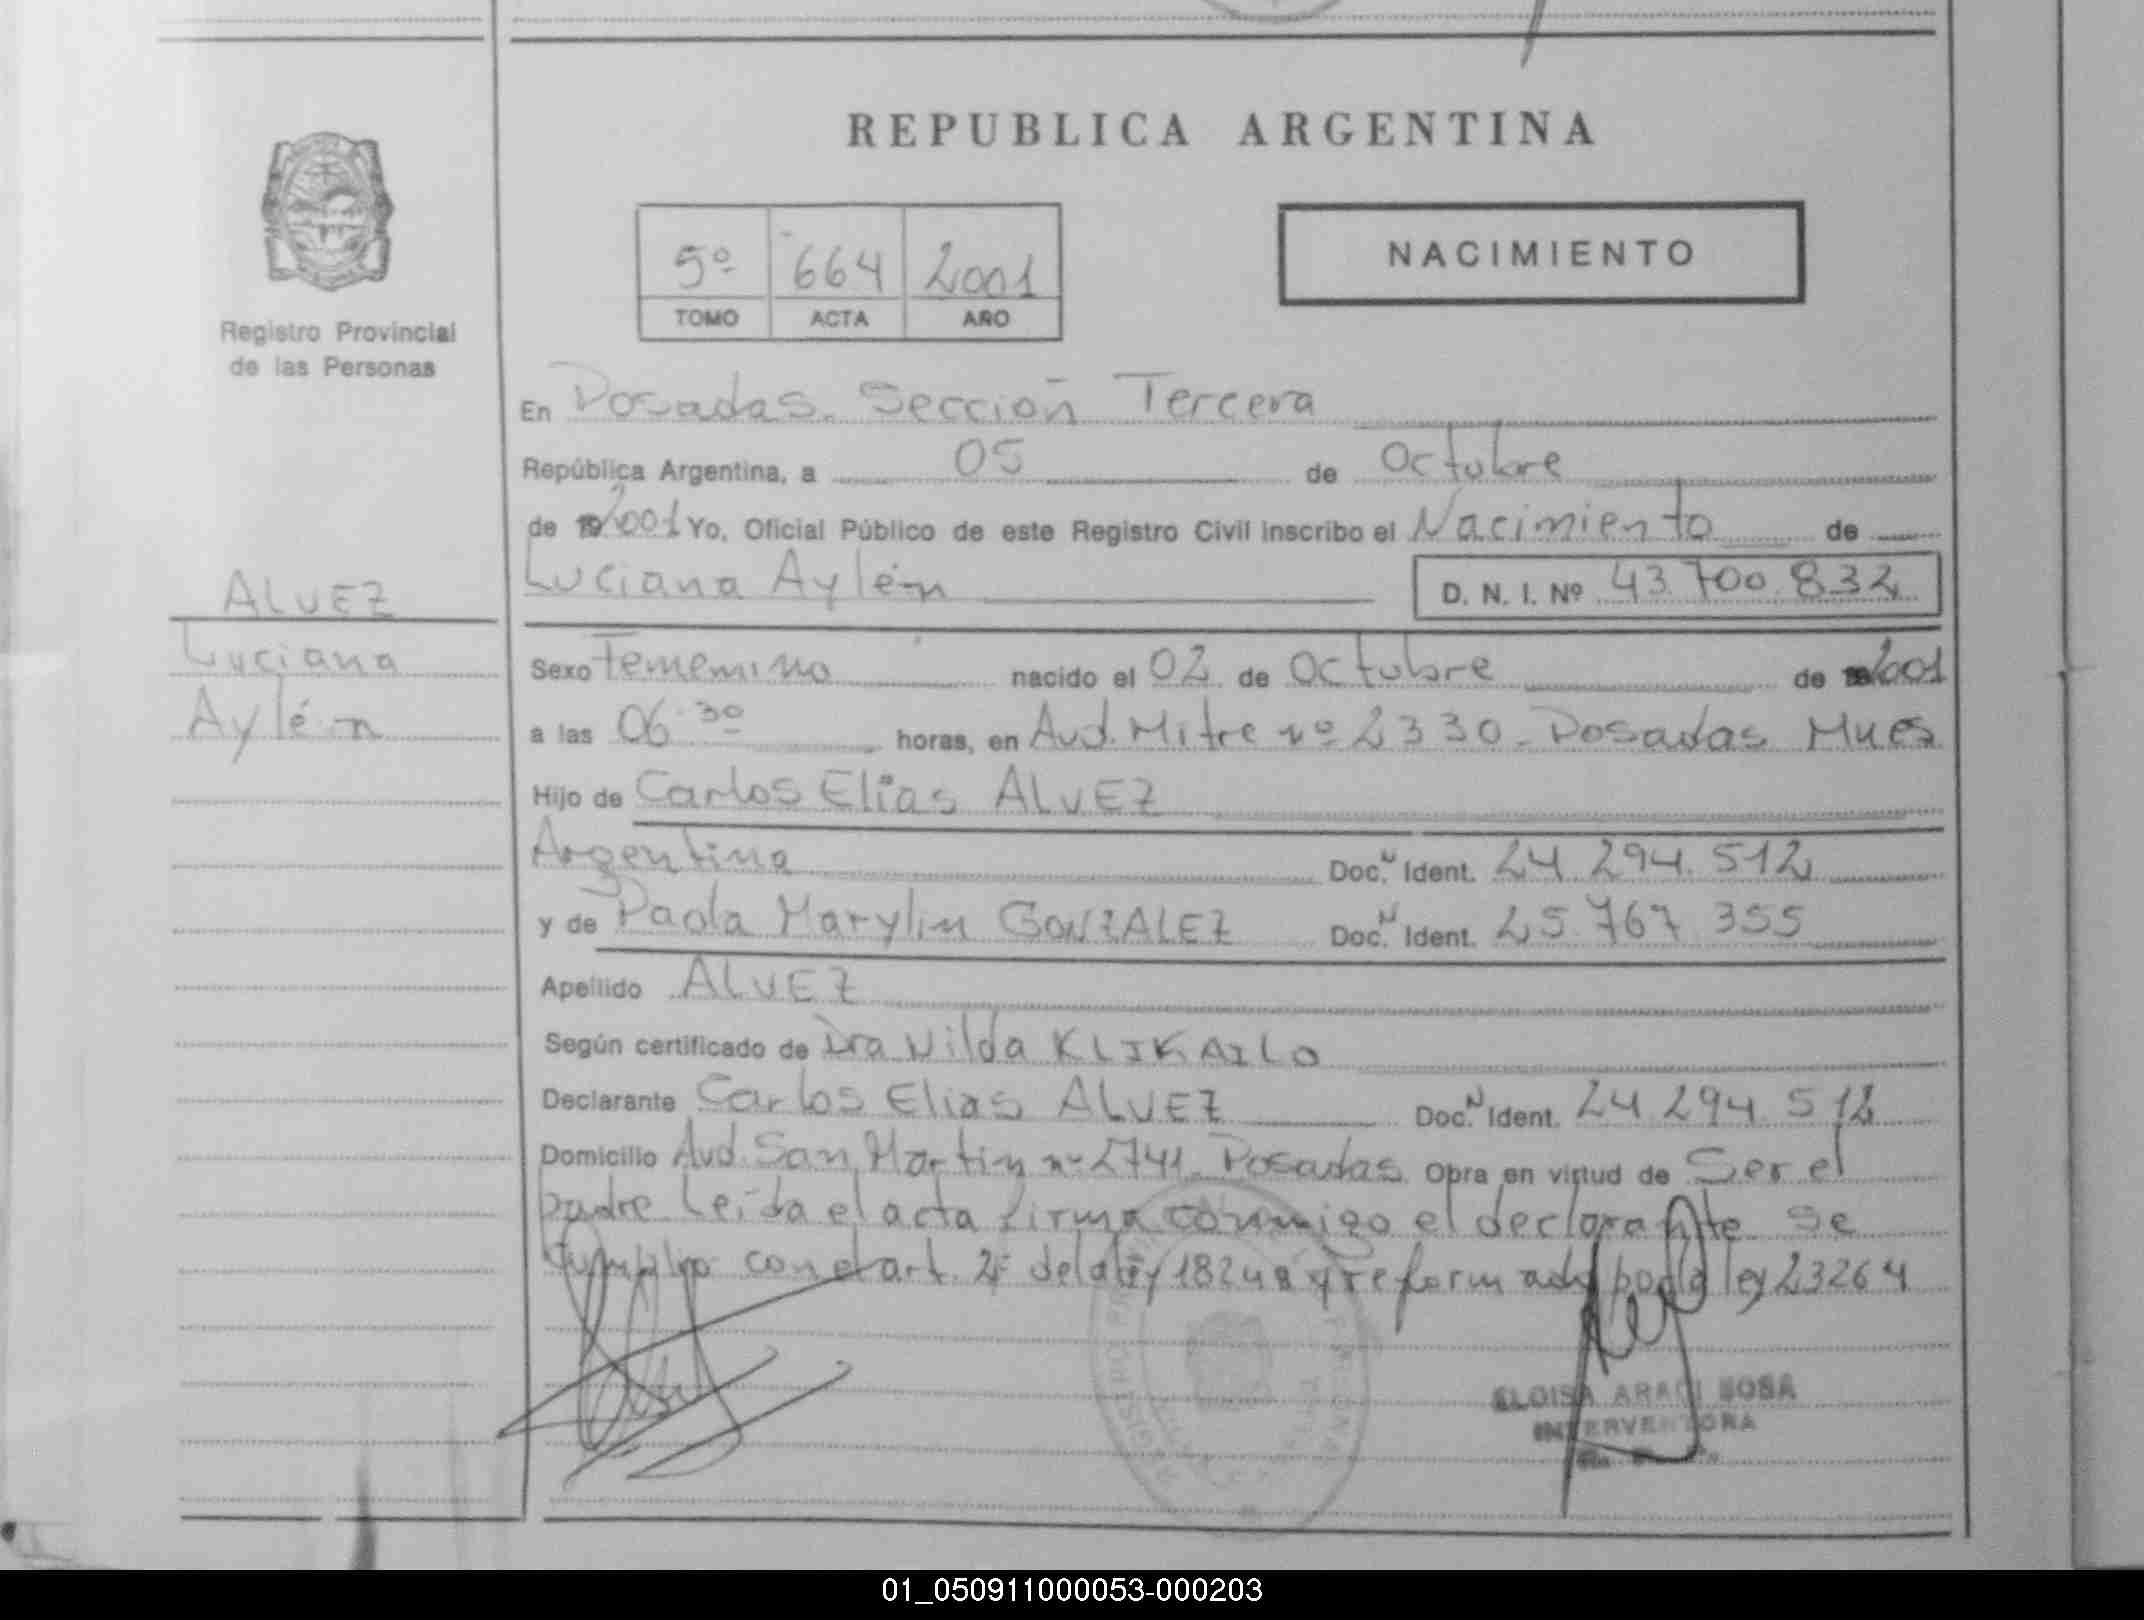 REPUBLICA ARGENTINA
NACIMIENTO
5º 664 2001
TOMO ACTA AÑO
Registro Provincial
de las Personas
ALVEZ
Luciana
Aylén
En Posadas. Sección Tercera
República Argentina, a 05 de Octubre
de 19 2001 Yo, Oficial Público de este Registro Civil inscribo el Nacimiento de
Luciana Aylén D. N. I. Nº 43.700.832
Sexo Femenino nacido el 02 de Octubre de 2001
a las 06:30 horas, en Avd. Mitre nº 2330 - Posadas Mnes
Hijo de Carlos Elias ALVEZ
Argentina Doc. N Ident. 24.294.512
y de Paola Marylin GONZALEZ Doc. N Ident. 25.767.355
Apellido ALVEZ
Según certificado de Dra Nilda KLIKAILO
Declarante Carlos Elias ALVEZ Doc. N Ident. 24.294.512
Domicilio Avd. San Martin nº 2741 - Posadas Obra en virtud de Ser el
padre Leida el acta firma conmigo el declarante se
cumplio con el art. 2º de la ley 18248 y reformado por la ley 23264
ELOISA ARACI SOSA
INTERVENTORA
01_050911000053-000203